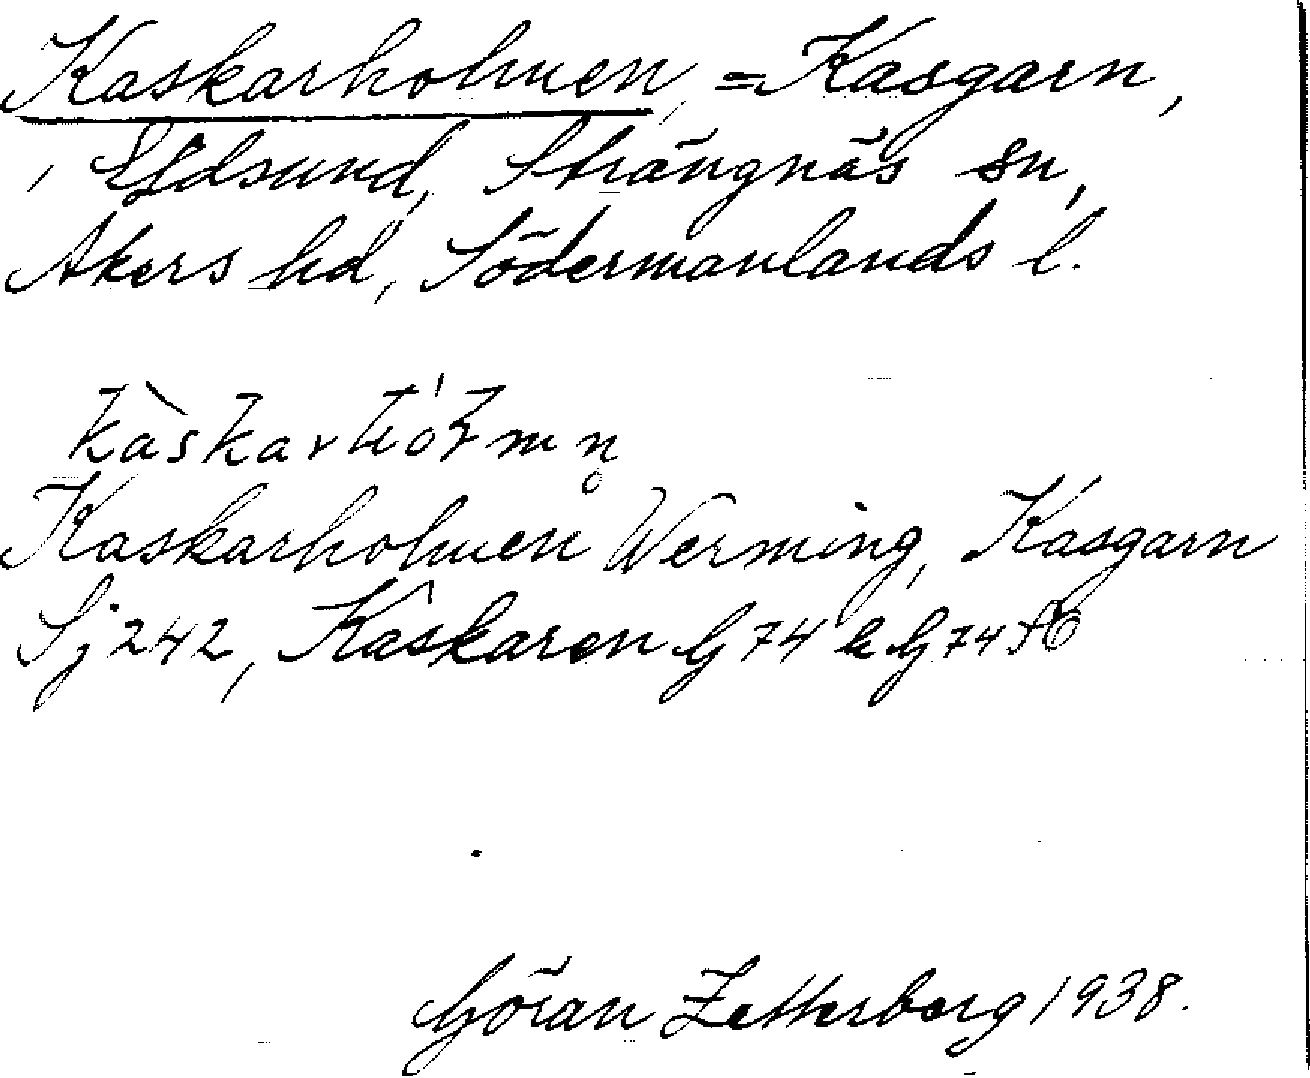 Kaskarholmen, = Kasgarn,
, Eldsund, Strängnäs sn,
Åkers hd, Södermanlands l.
Kaskarholmen Werming, Kasgarn
Sj 242, Kaskaren G 74 k G 74 Æ
Göran Zetterberg 1938.